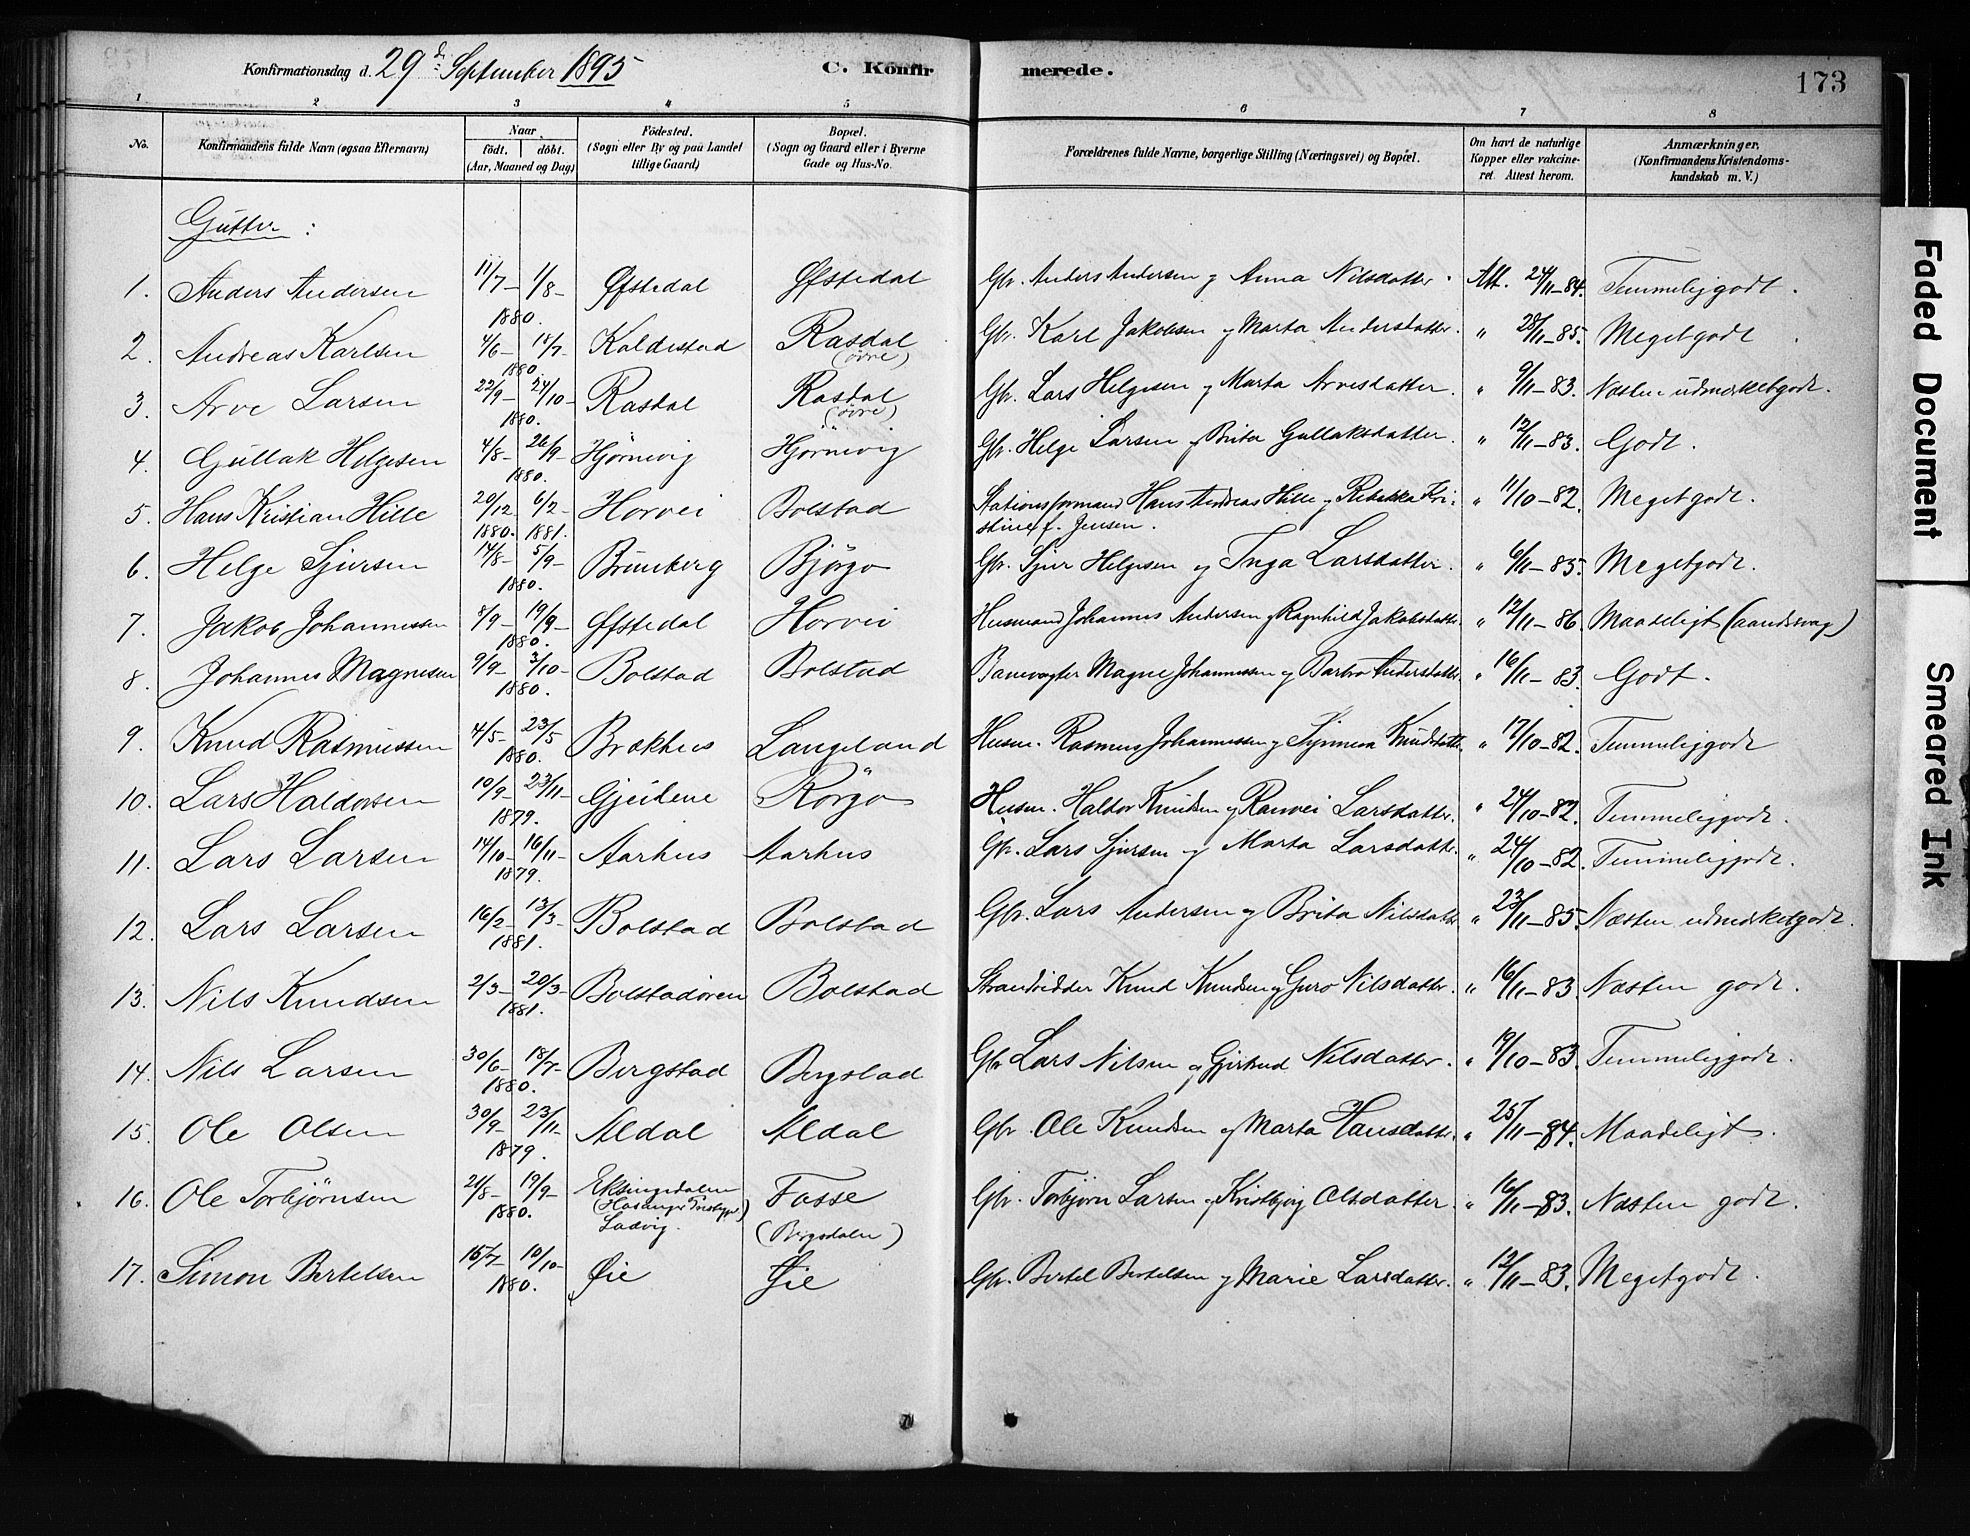 Konfirmationsdag d. 29 d: September 1895
C. Konfirmerede.
173
1 2 3 4 5 6 7 8
No.
Konfirmandens fulde Navn (ogsaa Efternavn)
Naar
født. døbt.
(Aar, Maaned og Dag)
Fødested.
(Sogn eller By og paa Landet
tillige Gaard)
Bopæl.
(Sogn og Gaard eller i Byerne
Gade og Hus-No.
Forældrenes fulde Navne, borgerlige Stilling (Næringsvei) og Bopæl.
Om havt de naturlige
Kopper eller vakcine-
ret. Attest herom.
Anmærkninger.
(Konfirmandens Kristendoms-
kundskab m. V.)
Gutter:
1. Anders Andersen 11/7 – 1/8 – 1880. Øfstedal Øfstedal Gbr. Anders Andersen og Anna Nilsdatter. Att. 24/11–84. Temmeliggodt.
2. Andreas Karlsen 4/6 – 14/7 – 1880. Kaldestad Rasdal (øvre) Gbr. Karl Jakobsen og Marta Andersdatter. " 28/11–85. Megetgodt.
3. Arve Larsen 22/9 – 24/10 – 1880. Rasdal Rasdal (øvre) Gbr. Lars Helgesen og Marta Arvesdatter. " 9/11–83. Næsten udmærketgodt.
4. Gullak Helgesen 4/8 – 26/9 – 1880. Hjørnevig Hjørnevig Gbr. Helge Larsen og Brita Gullaksdatter. " 12/11–83. Godt.
5. Hans Kristian Hille 20/12 – 1880. 6/2 – 1881. Horvei Bolstad Stationsformand Hans Andreas Hille og Rebekka Kri-
stine f. Jensen. " 11/10–82. Megetgodt.
6. Helge Sjursen 14/8 – 5/9 – 1880. Brunberg Bjørgo Gbr. Sjur Helgesen og Inga Larsdatter. " 6/11–85. Megetgodt.
7. Jakob Johannessen 8/9 – 19/9 – 1880. Øfstedal Horvei Husmand Johannes Andersen og Ragnhild Jakobsdatter. " 12/11–86. Maadeligt (aandssvag)
8. Johannes Magnesen 9/9 – 3/10 – 1880. Bolstad Bolstad Banevogter Magne Johannessen og Barbro Andersdatter. " 16/11–83. Godt.
9. Knud Rasmussen 4/5 – 23/5 1880. Brækhus Langeland Husm. Rasmus Johannessen og Synneva Knudsdatter. " 17/10–82. Temmeliggodt
10. Lars Haldorsen 10/9 – 23/11 – 1879. Gjeidene Rørgo Husm. Haldor Knudsen og Ranvei Larsdatter. " 24/10–82. Temmeliggodt.
11. Lars Larsen 14/10 – 16/11 – 1879. Aarhus Aarhus Gbr. Lars Sjursen og Marta Larsdatter. " 24/10–82. Temmeliggodt.
12. Lars Larsen 16/2 – 13/3 – 1881. Bolstad Bolstad Gbr. Lars Andersen og Brita Nilsdatter " 23/11–85. Næsten udmærketgodt.
13. Nils Knudsen 2/3 – 20/3 – 1881. Bolstadøren Bolstad Strandsidder Knud Knudsen og Guro Nilsdatter. " 16/11–83. Næsten godt.
14. Nils Larsen 30/6 – 18/7 – 1880. Bergstad Bergstad Gbr Lars Nilsen og Gjertrud Nilsdatter. " 19/10–83. Temmeliggodt.
15. Ole Olsen 30/9 – 23/11 – 1879. Aldal Aldal Gbr. Ole Knudsen og Marta Hansdatter. " 25/11–84. Maadeligt.
16. Ole Torbjørnsen 21/8 – 19/9 – 1880. Eksingedalen Ladvig. Fosse (Bergsdalen) Gbr. Torbjørn Larsen og Kristbjørg Olsdatter. " 16/11–83. Næsten godt.
17. Simon Bertelsen 15/7 – 10/10 – 1880. Øie Øie Gbr. Bertel Bertelsen og Marie Larsdatter. " 12/11–83. Megetgodt.
Faded Document
Smeared Ink